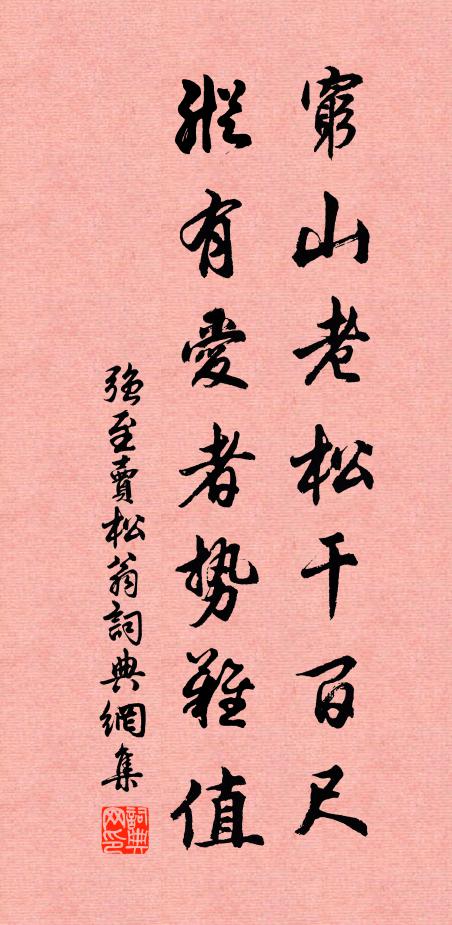 窮山老松干百尺
縱有愛者勢難值
強至賣松翁詞典網集
詞典网印